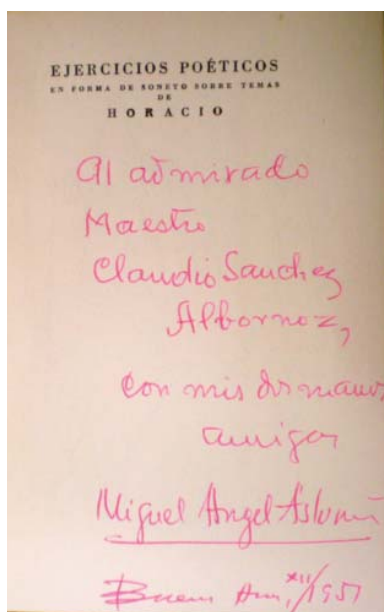 EJERCICIOS POÉTICOS
EN FORMA DE SONETO SOBRE TEMAS
DE
HORACIO
Al admirado
Maestro
Claudio Sanchez
Albornoz,
con mis dos manos
amigas
Miguel Angel
Buenos XII/1951